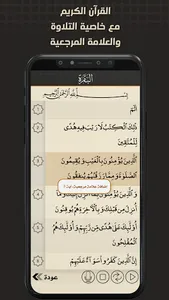 القرآن الكريم
مع خاصية التلاوة
والعلامة المرجعية
البقرة
بِسْمِ اللَّهِ الرَّحْمَٰنِ الرَّحِيمِ
الٓمٓ
ذَٰلِكَ الْكِتَٰبُ لَا رَيْبَ فِيهِ هُدًى
لِّلْمُتَّقِينَ
الَّذِينَ يُؤْمِنُونَ بِالْغَيْبِ وَيُقِيمُونَ
الصَّلَوٰةَ وَمِمَّا رَزَقْنَٰهُمْ يُنفِقُونَ
وَالَّذِينَ يُؤْمِنُونَ
أُو۟لَٰٓئِكَ عَلَىٰ هُدًى مِّن رَّبِّهِمْ وَأُو۟لَٰٓئِكَ هُمُ
الْمُفْلِحُونَ
إِنَّ الَّذِينَ كَفَرُوا۟ سَوَآءٌ عَلَيْهِمْ
عودة